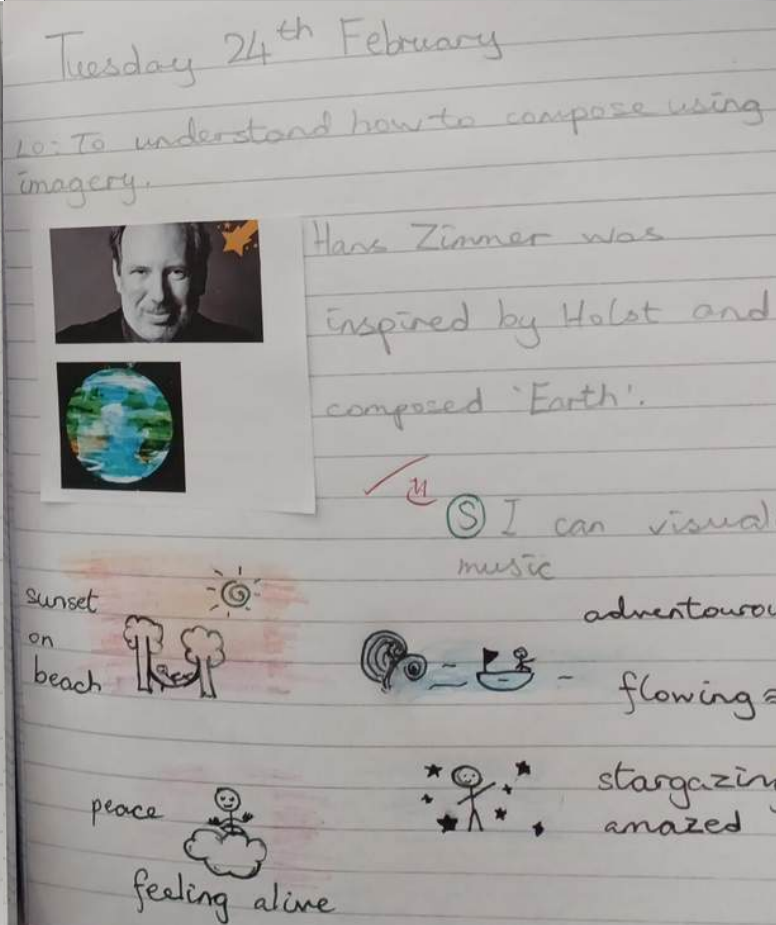 Tuesday 24th February
LO: To understand how to compose using
imagery.
Hans Zimmer was
inspired by Holst and
composed 'Earth'.
S I can visual
music
sunset
on
beach
adventourou
flowing
peace
feeling alive
stargazin
amazed